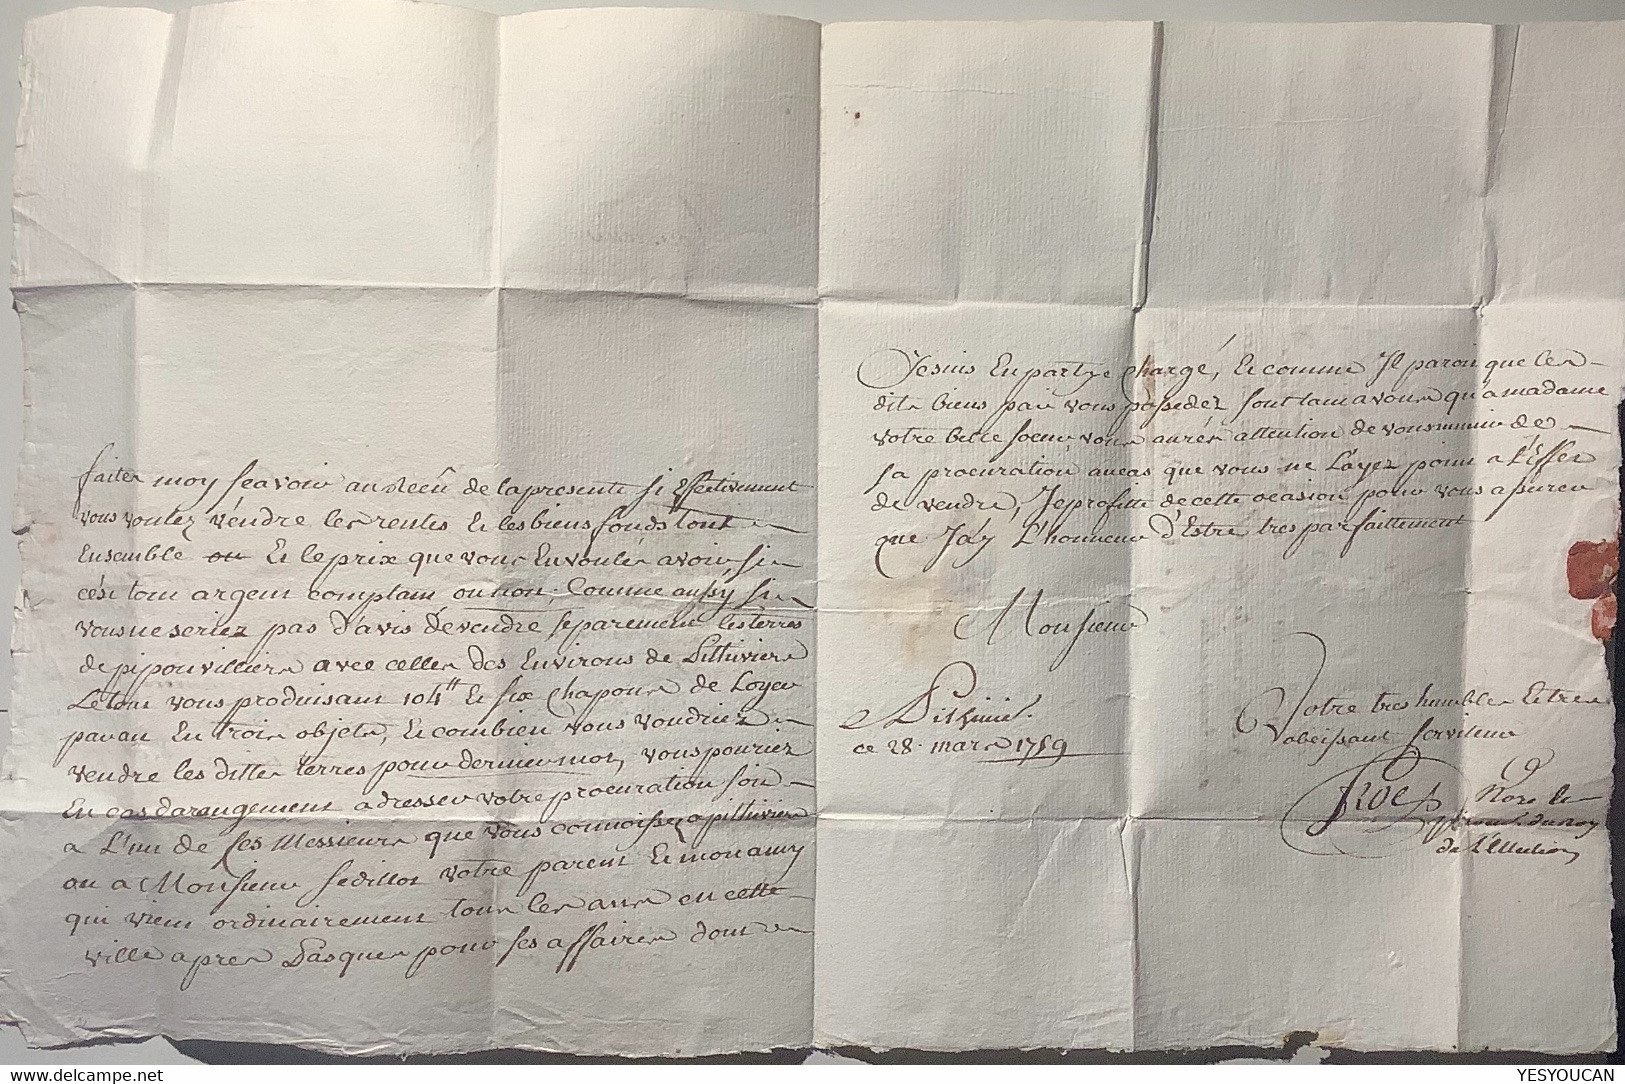 faites moy sçavoir au Reçû de la presente si Effectivement
vous voulez véndre les rentes Et les biens fonds tout
Ensemble ou Et le prix que vous En voulés avoir, si
c'ést tout argent comptant ou non; Comme aussy si
vous ne seriez pas d'avis dévendre separement les terres
de pipouvilliers avec celles des Environs de Pithiviers
Le tout vous produisant 104tt Et six chapons de Loyer
par an En trois objets, Et combien vous voudriez
vendre les dittes terres pour dernier mot, vous pouriez
En cas darangement adresser votre procuration soit
a L'un de ses Messieurs que vous connoissez a pithiviers
ou a Monsieur sedillot votre parent Et mon amy
qui vient ordinairement tous les ans en cette
ville apres Pasques pour ses affaires dont
Je suis En partye chargé, Et comme Il paroit que les
dits biens par vous possedez sont tant a vous qu'a madame
votre belle soeur vous aurés attention de vous munir de
sa procuration au cas que vous ne L'ayez point a L'Effet
de vendre, Je profitte de cette ocasion pour vous assurer
que J'ay L'honneur d'Estre tres parfaittement
Monsieur
Pithiviers
ce 28 mars 1759
Votre tres humble Et tres
obeissant serviteur
du Roy
de L'Election
YESYOUCAN